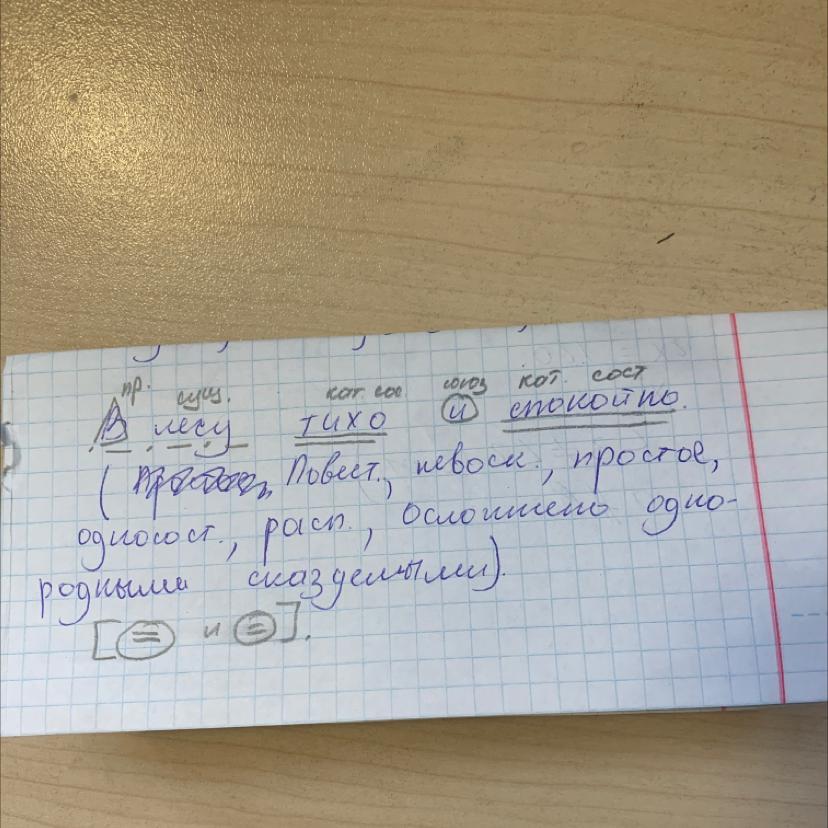 пр. сущ. кат. сос союз кат. сост
В лесу тихо и спокойно.
( Повест., невоск., простое,
односост., расп., осложнено одно-
родными сказуемыми).
[= и =].